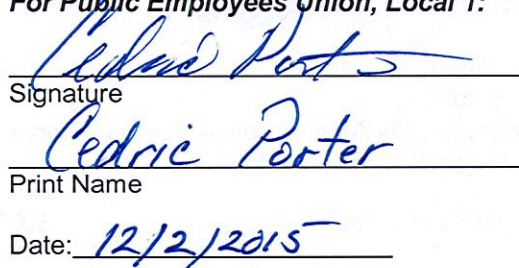 For Public Employees Union, Local 1:
Cedric Porter
Signature
Cedric Porter
Print Name
Date: 12/2/2015